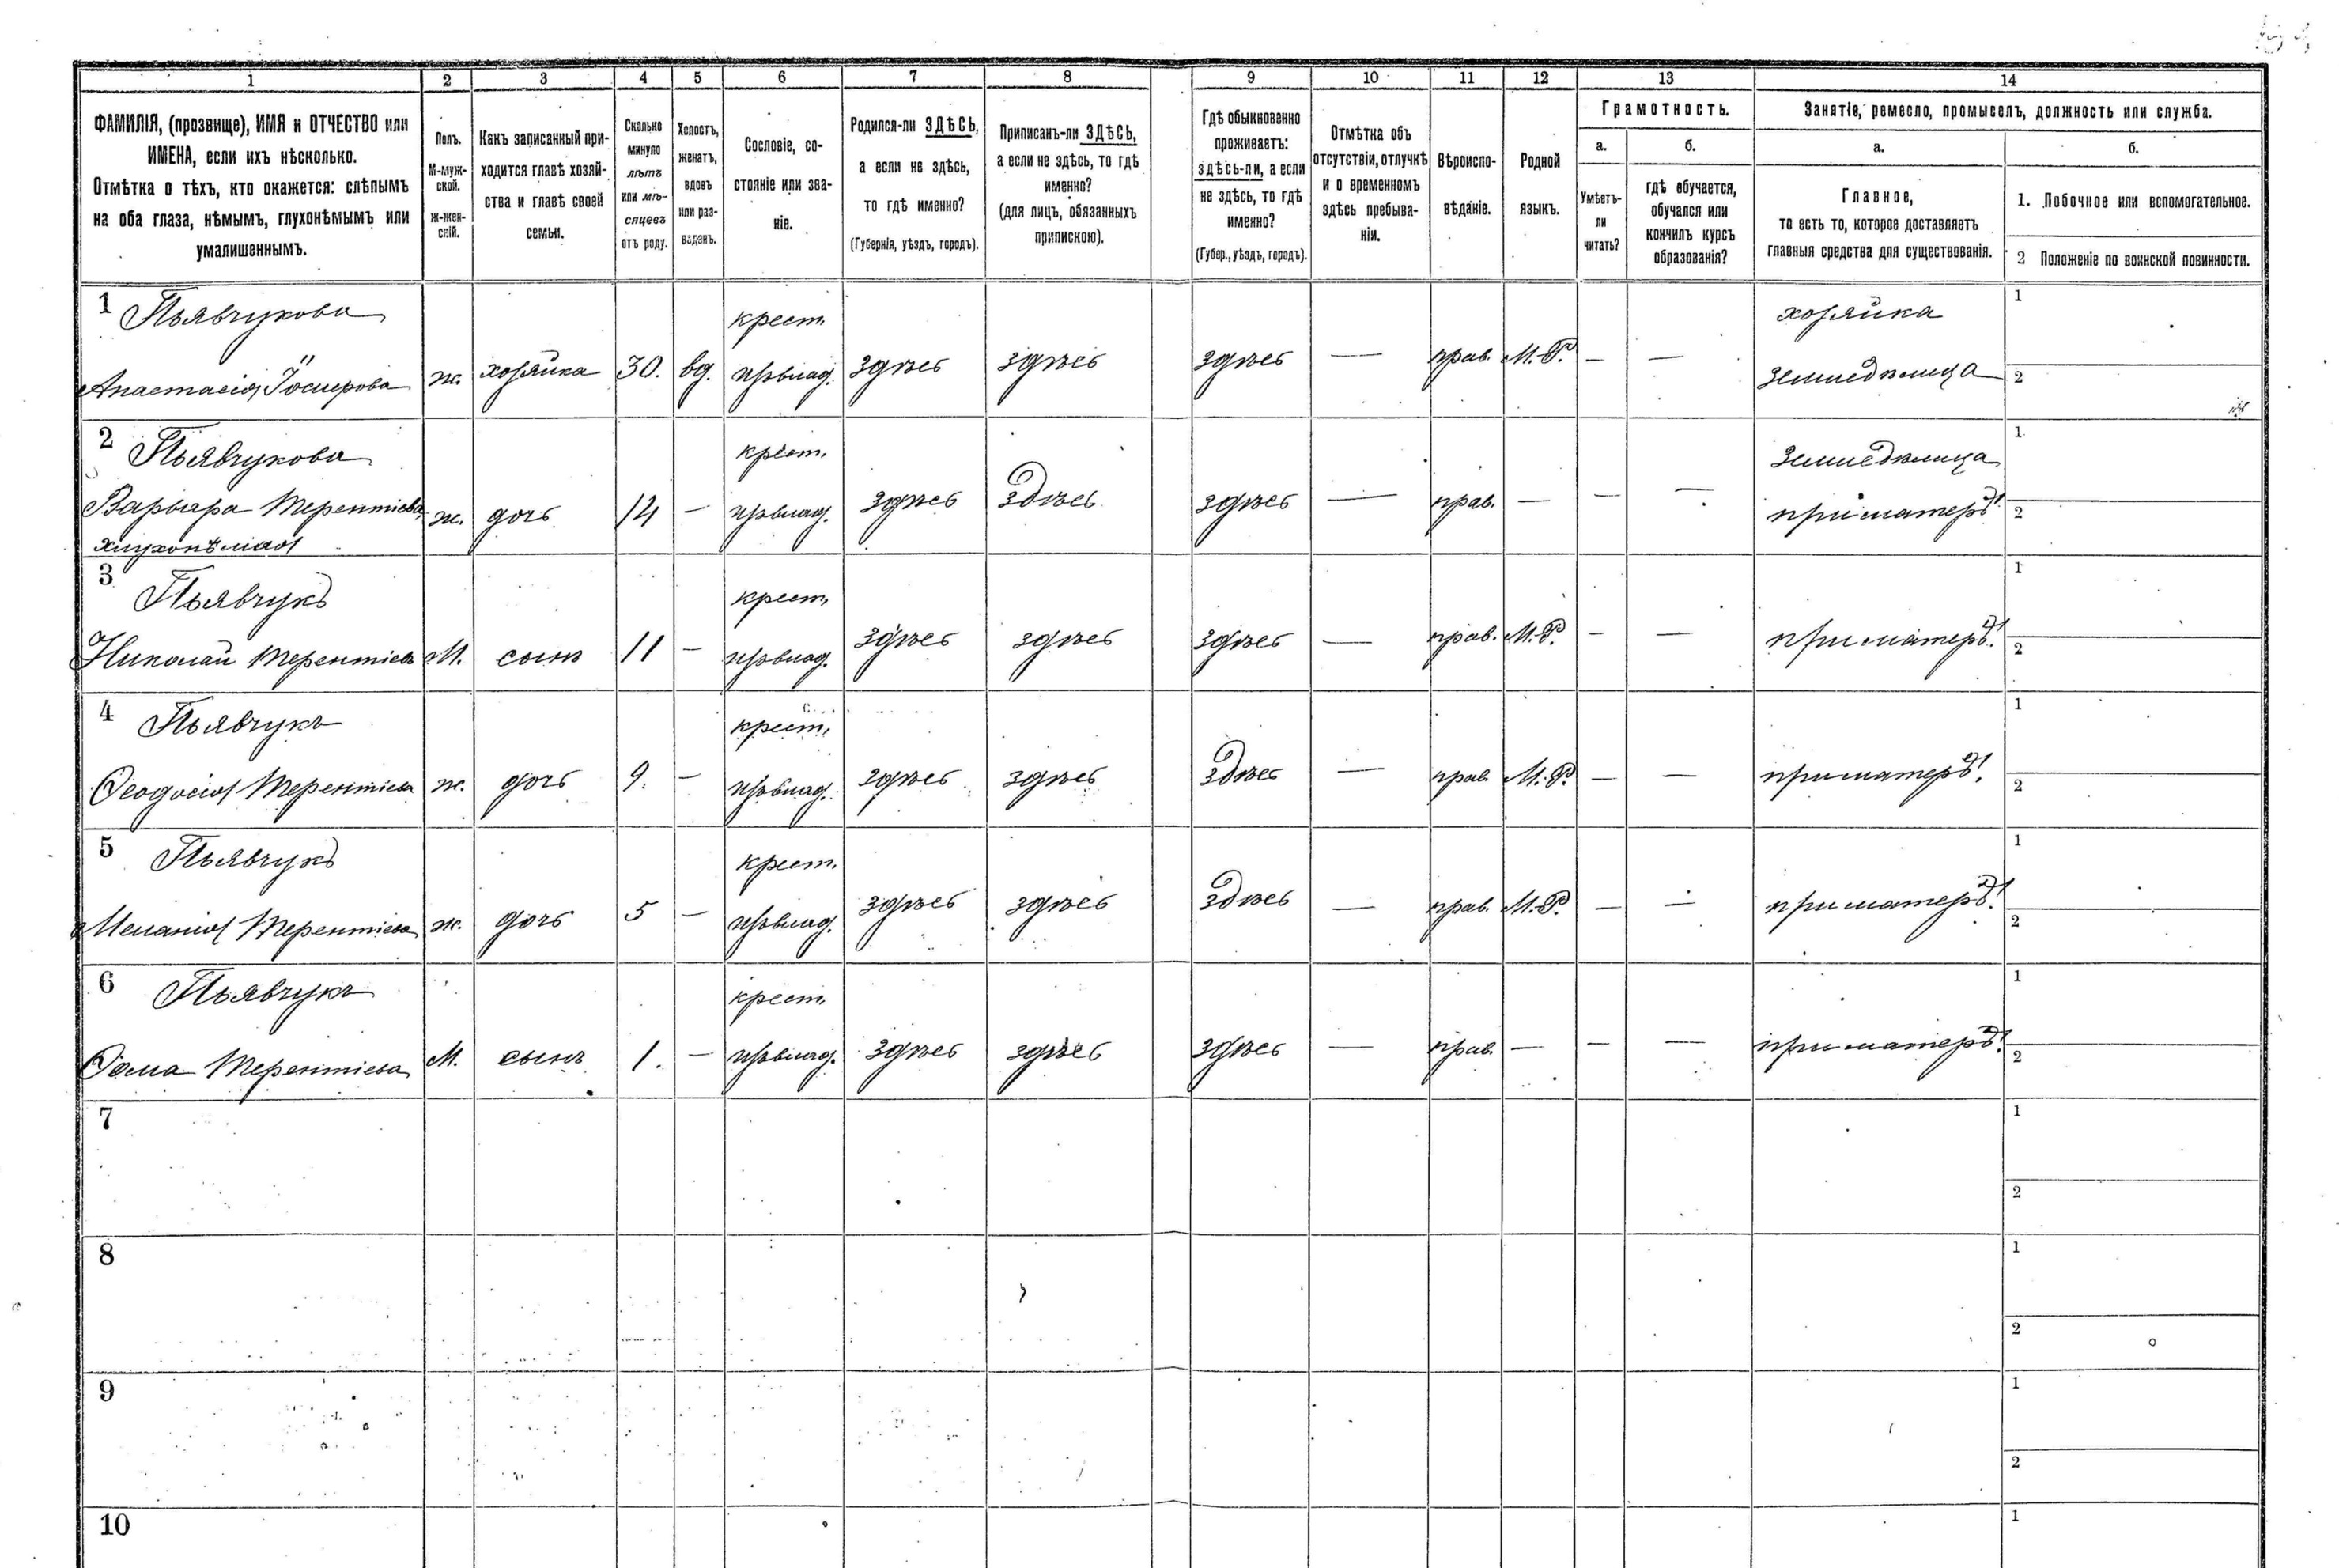 1 2 3 4 5 6 7 8 9 10 11 12 13 14
ФАМИЛІЯ, (прозвище), ИМЯ и ОТЧЕСТВО или
ИМЕНА, если ихъ нѣсколько.
Отмѣтка о тѣхъ, кто окажется: слѣпымъ
на оба глаза, нѣмымъ, глухонѣмымъ или
умалишеннымъ.
Полъ.
М-муж-
ской.
ж-жен-
скій.
Какъ записанный при-
ходится главѣ хозяй-
ства и главѣ своей
семьи.
Сколько
минуло
лѣтъ
или мѣ-
сяцевъ
отъ роду.
Холостъ,
женатъ,
вдовъ
или раз-
веденъ.
Сословіе, со-
стояніе или зва-
ніе.
Родился-ли ЗДѢСЬ,
а если не здѣсь,
то гдѣ именно?
(Губернія, уѣздъ, городъ).
Приписанъ-ли ЗДѢСЬ,
а если не здѣсь, то гдѣ
именно?
(для лицъ, обязанныхъ
припискою).
Гдѣ обыкновенно
проживаетъ:
здѣсь-ли, а если
не здѣсь, то гдѣ
именно?
(Губер., уѣздъ, городъ).
Отмѣтка объ
отсутствіи, отлучкѣ
и о временномъ
здѣсь пребыва-
ніи.
Вѣроиспо-
вѣданіе.
Родной
языкъ.
Грамотность.
а.
Умѣетъ-
ли
читать?
б.
гдѣ обучается,
обучался или
кончилъ курсъ
образованія?
Занятіе, ремесло, промыселъ, должность или служба.
а.
Главное,
то есть то, которое доставляетъ
главныя средства для существованія.
б.
1. Побочное или вспомогательное.
2 Положеніе по воинской повинности.
1 Пьявчукова крест. хозяйка 1
Анастасія ж. хозяйка 30. вд. здѣсь здѣсь здѣсь — прав. М.-Р. — — земледѣлица 2
2 Пьявчукова крест. земледѣлица 1
Варвара Терентіева ж. дочь 14 — здѣсь здѣсь здѣсь — прав. — — — при матерѣ 2
3 Пьявчукъ крест. 1
Николай Терентіевъ М. сынъ 11 — здѣсь здѣсь здѣсь — прав. М.-Р. — — при матерѣ 2
4 Пьявчукъ крест. 1
Ѳеодосія Терентіева ж. дочь 9. — здѣсь здѣсь здѣсь — прав. М.-Р. — — при матерѣ 2
5 Пьявчукъ крест. 1
Меланія Терентіева ж. дочь 5 — здѣсь здѣсь здѣсь — прав. М.-Р. — — при матерѣ 2
6 Пьявчукъ крест. 1
Ѳома Терентіева М. сынъ 1. — здѣсь здѣсь здѣсь — прав. — — — при матерѣ 2
7 1
2
8 1
2
9 1
2
10 1